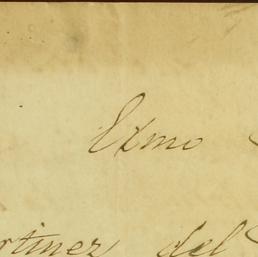 Exmo
rtinez del